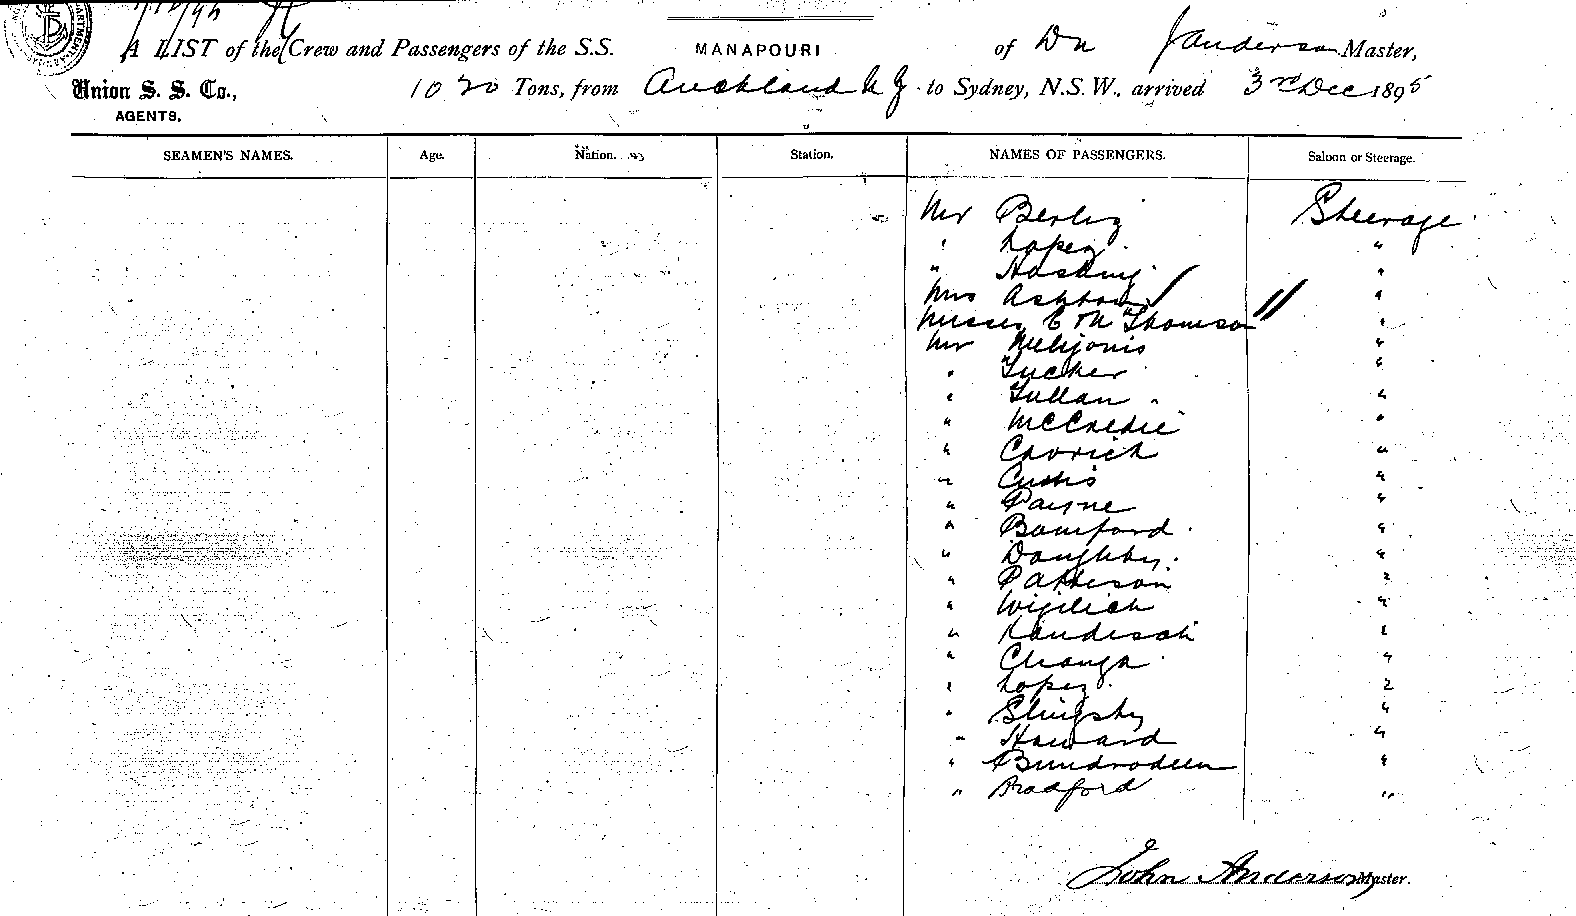 A LIST of the Crew and Passengers of the S.S. MANAPOURI of Dn J Anderson Master,
Union S. S. Co., 1020 Tons, from Auckland N Z to Sydney, N.S.W., arrived 3rd Dec 1895
AGENTS.
SEAMEN'S NAMES. Age. Nation. Station. NAMES OF PASSENGERS. Saloon or Steerage.
Mr Berling Steerage
" Lopez "
" Hosking "
Mrs Ashton "
Misses C M Thomson "
Mr "
" Tucker "
" Tullan "
" McCredie "
" "
" Curtis "
" Payne "
" Bamford "
" Doughty "
" Patterson "
" "
" "
" Changa "
" Lopez "
" Slingsby "
" Howard "
" "
" Bradford "
John Anderson Master.